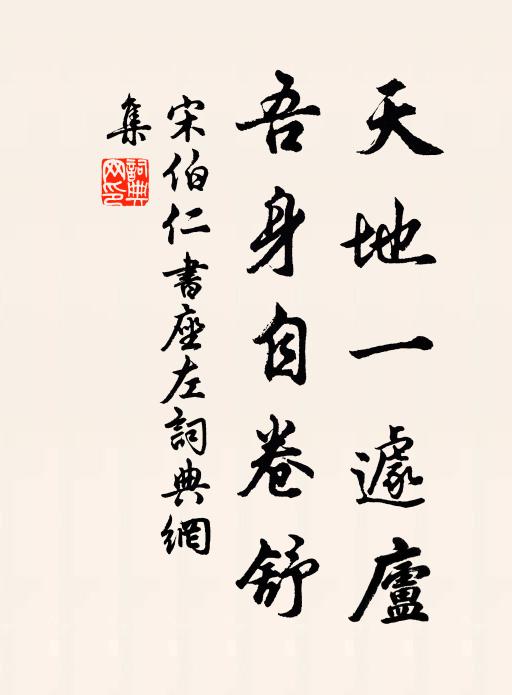 天地一遽廬
吾身自卷舒
宋伯仁書座左詞典網
集
詞典網印